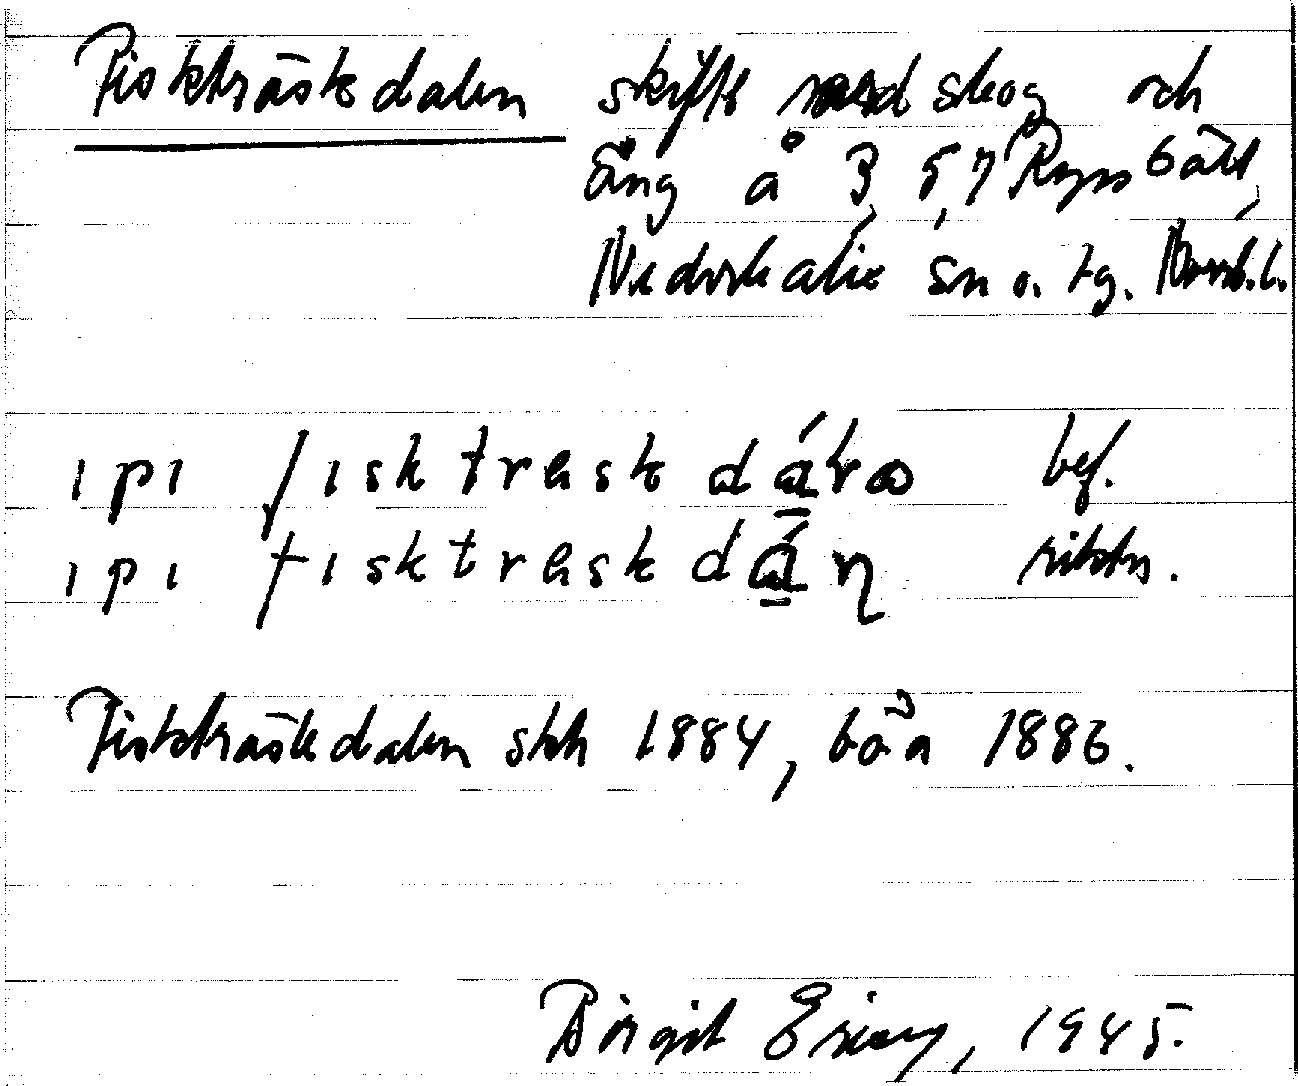 Fiskträskdalen skifte med skog och
äng å 3, 5, 7 Ryssbält,
Nederkalix sn o. tg. Norrb.l.
ıpı fısktrask dáɫa bef.
ıpı fısktrask dáṇ riktn.
Fiskträskdalen skh 1884, båa 1886.
Birgit Ericz, 1945.